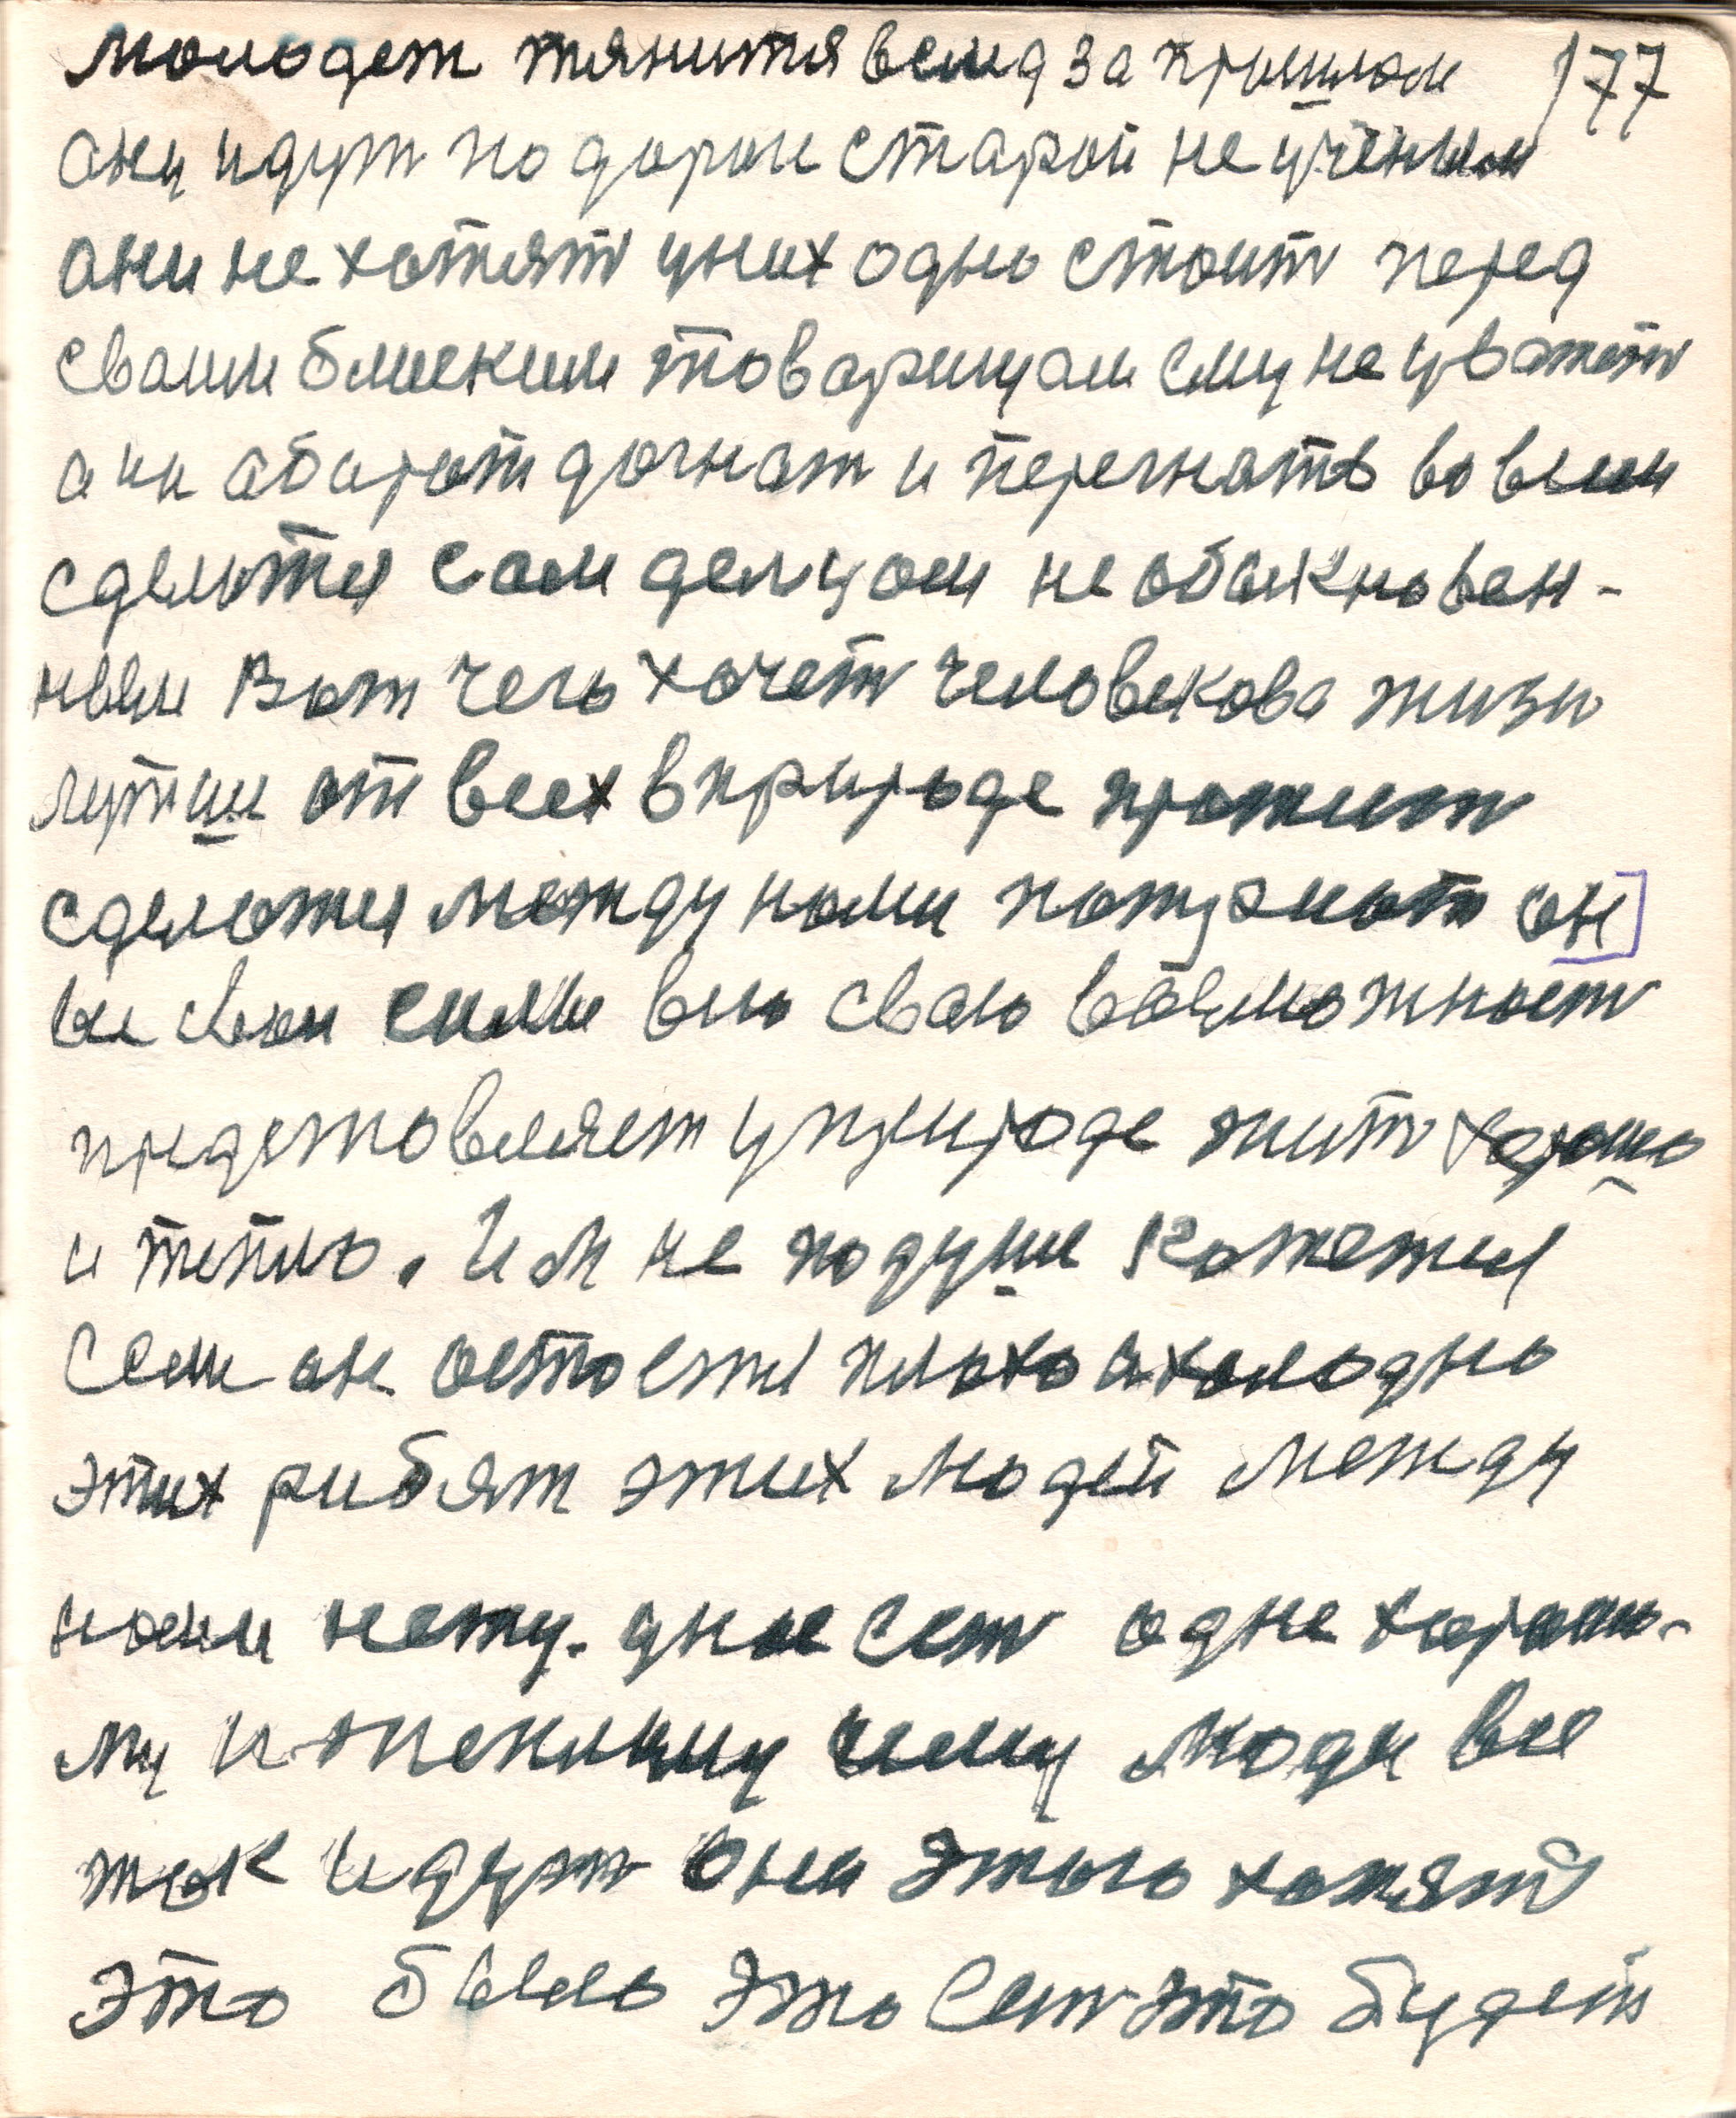 молодеж тянится всед за прошлом 177
они идут по дороги старой не учёными
они не хотят уних одно стоит перед
своим блиским товарищам ему не уважать
они абаратт догнат и перегнать во всем
сделатся сам делцом не обыкновен-
ным Вот чего хочет человекова жизн
лутши от всех в природе прожит
сделатся между нами
все свои силы всю сваю возможност
предстовляет у природе жить хорошо
и тепло. Им не подуши кажется
Если он остоется плохо и холодно
этих рибят этих людей между
нами нету. днесь ест одне хорош-
му и теплому чему люди все
так идут они этого хотят
это было это ест это будет